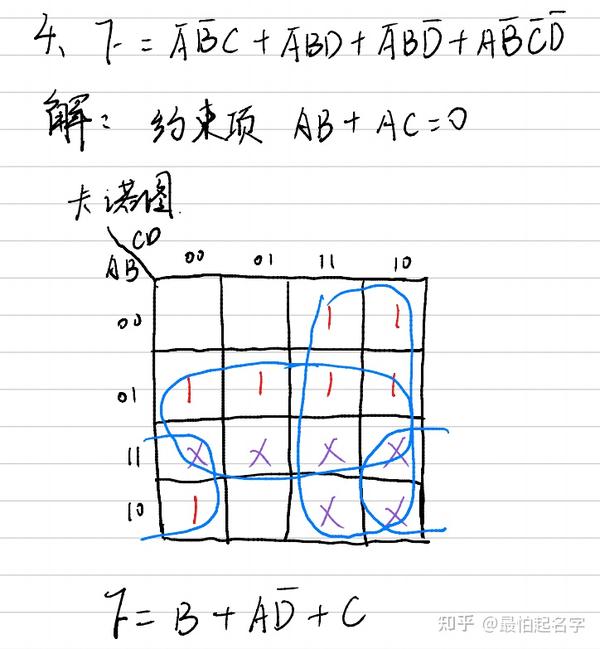 4、F = A̅B̅C + A̅BD + A̅BD̅ + AB̅C̅D̅
解：约束项 AB + AC = 0
卡诺图
CD
AB 00 01 11 10
00 1 1
01 1 1 1 1
11 X X X X
10 1 X X
F = B + AD̅ + C
知乎 @最怕起名字